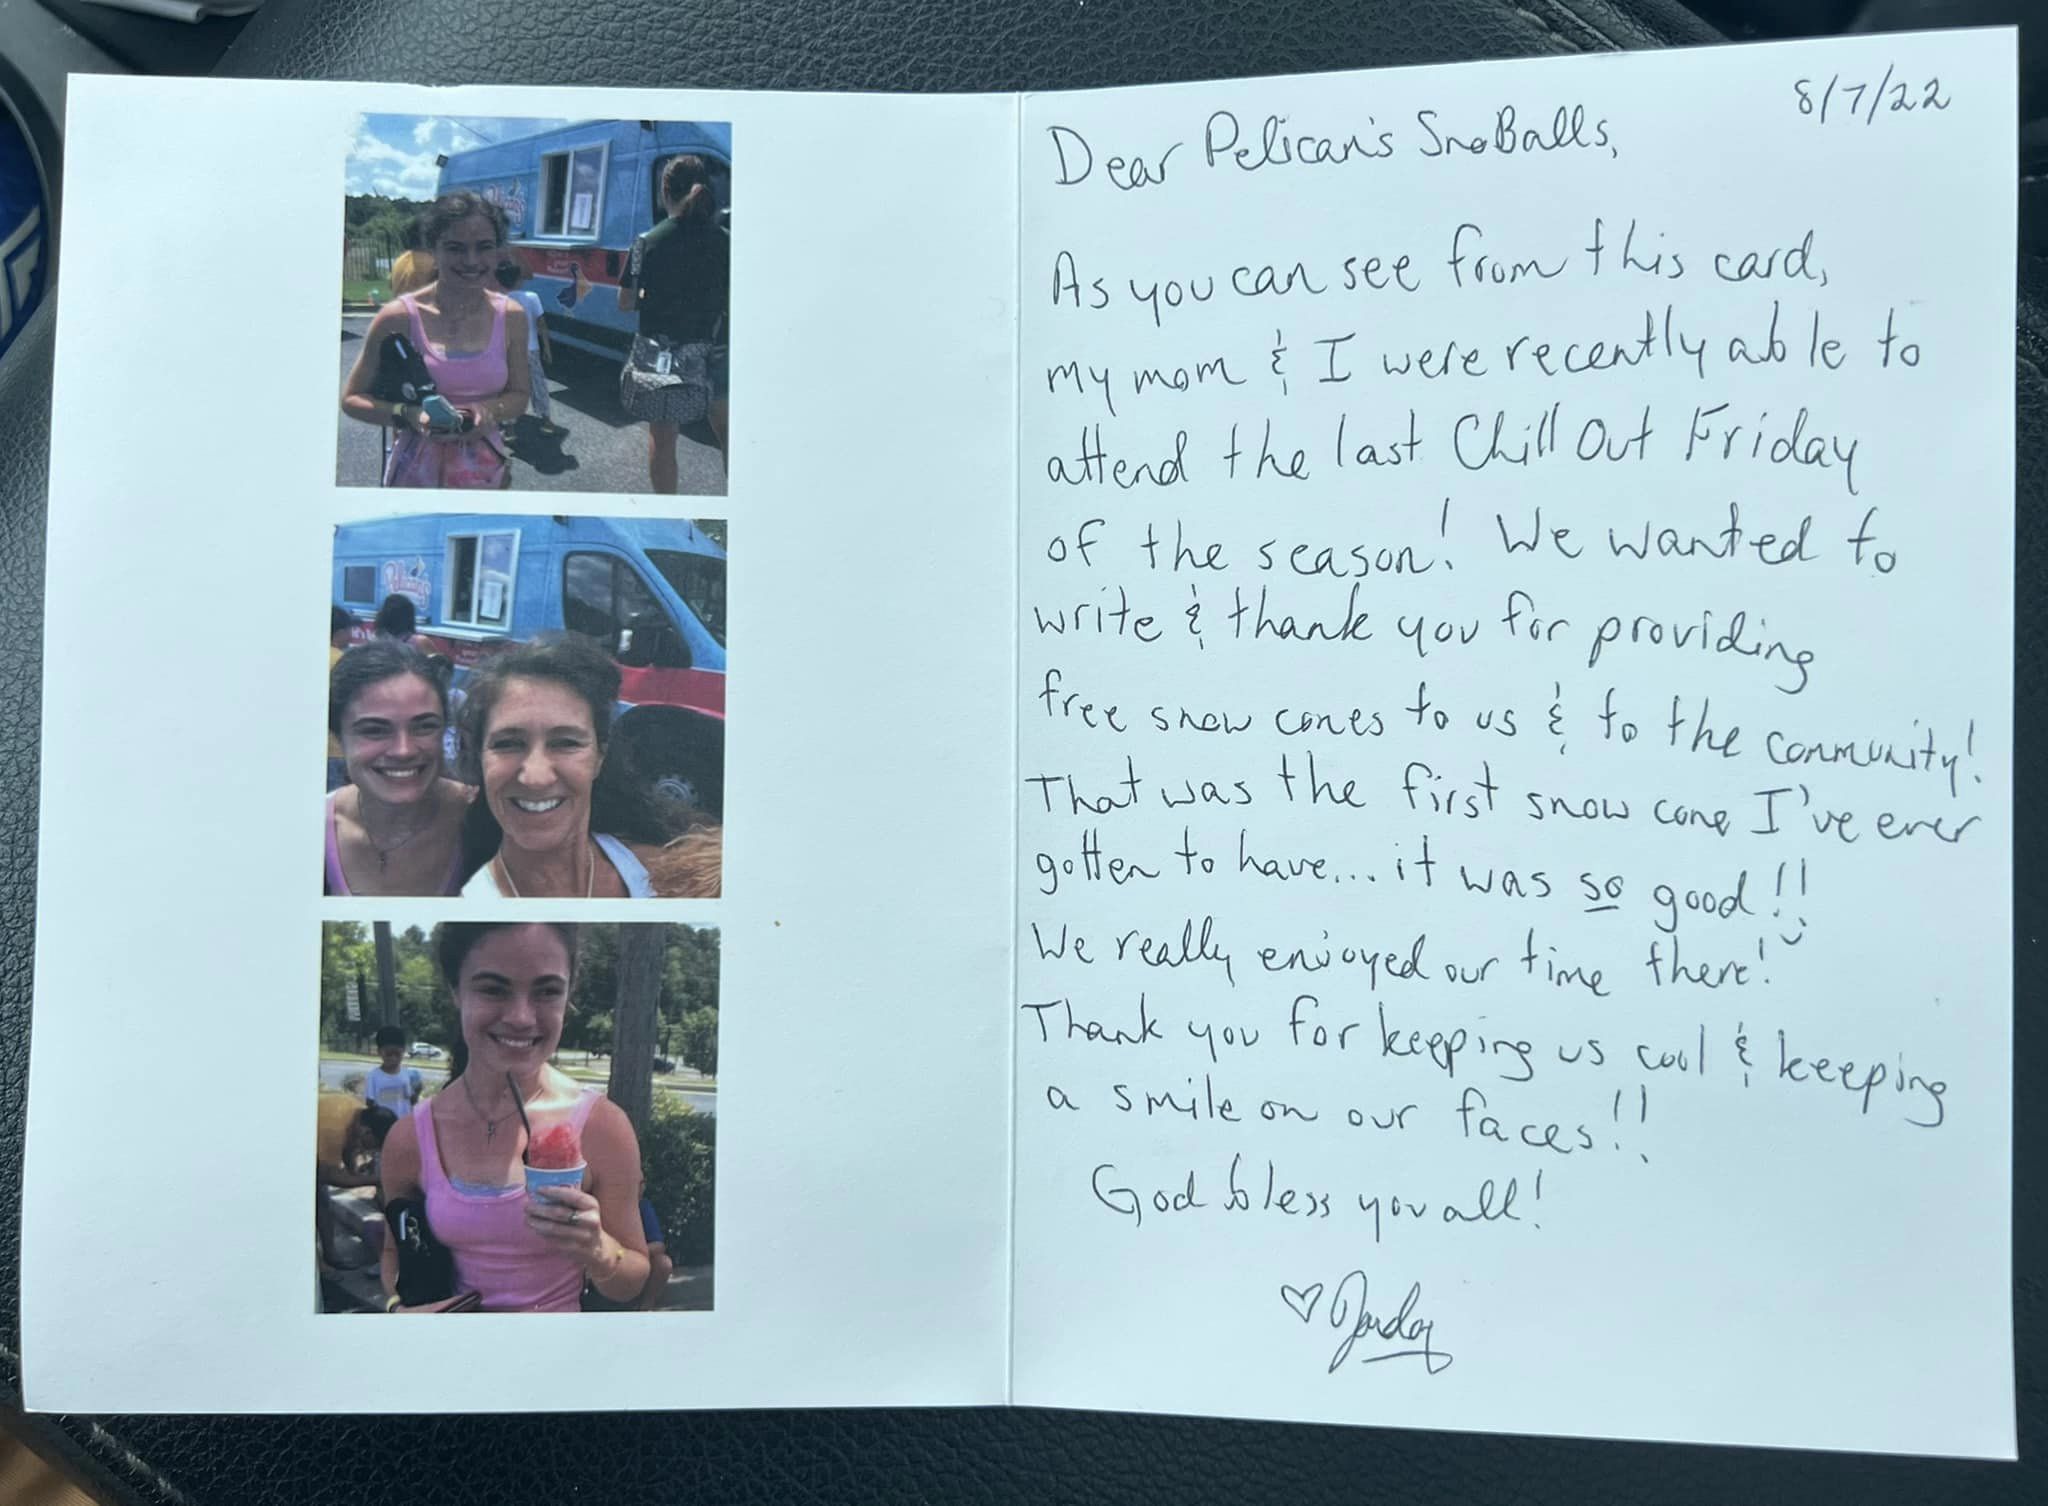 Pelican's
8/7/22
Dear Pelican's SnoBalls,
As you can see from this card,
my mom & I were recently able to
attend the last Chill Out Friday
of the season! We wanted to
write & thank you for providing
free snow cones to us & to the community!
That was the first snow cone I've ever
gotten to have... it was so good!!
We really enjoyed our time there!
Thank you for keeping us cool & keeping
a smile on our faces!!
God bless you all!